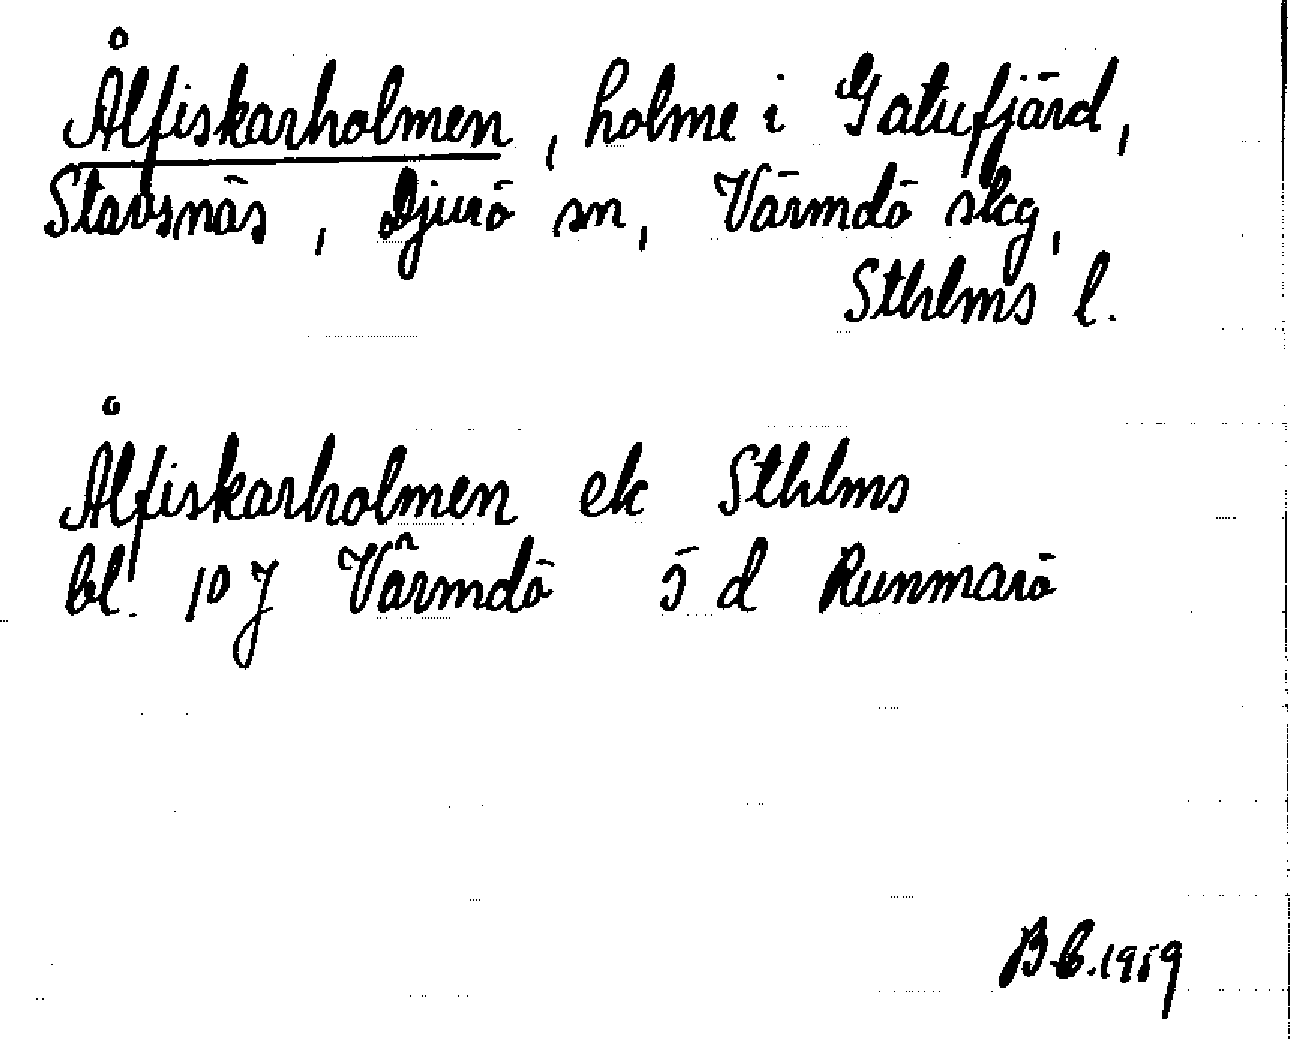 Ålfiskarholmen, holme i Gatufjärd,
Stavsnäs, Djurö sn, Värmdö skg,
Sthlms l.
Ålfiskarholmen ek Sthlms
bl. 10 J Värmdö 5 d Runmarö
B.C. 1959